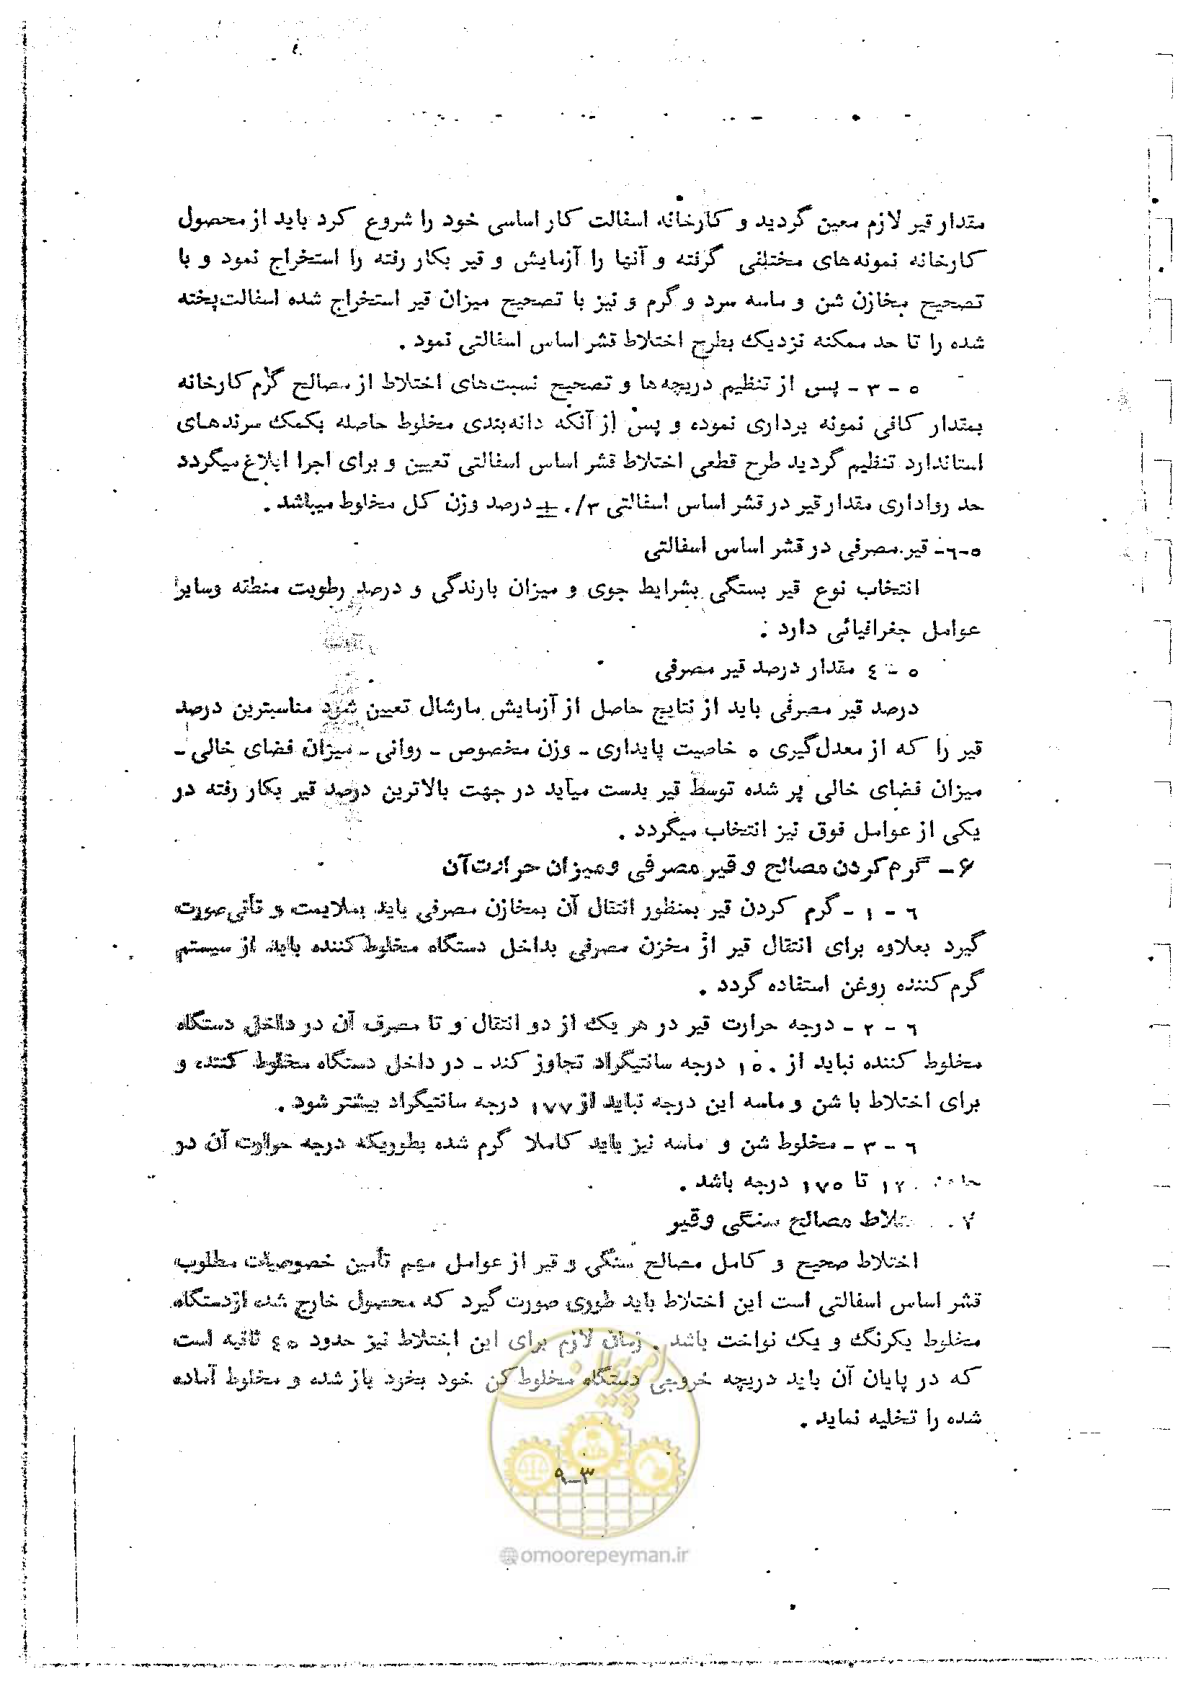 مقدار قیر لازم معین گردید و کارخانه اسفالت کار اساسی خود را شروع کرد باید از محصول
کارخانه نمونه‌های مختلفی گرفته و آنها را آزمایش و قیر بکار رفته را استخراج نمود و با
تصحیح مخازن شن و ماسه سرد و گرم و نیز با تصحیح میزان قیر استخراج شده اسفالت‌پخته
شده را تا حد ممکنه نزدیک بطرح اختلاط قشر اساس اسفالتی نمود .
۵ - ۳ - پس از تنظیم دریچه‌ها و تصحیح نسبت‌های اختلاط از مصالح گرم کارخانه
بمقدار کافی نمونه برداری نموده و پس از آنکه دانه‌بندی مخلوط حاصله بکمک سرندهای
استاندارد تنظیم گردید طرح قطعی اختلاط قشر اساس اسفالتی تعیین و برای اجرا ابلاغ میگردد
حد رواداری مقدار قیر در قشر اساس اسفالتی ۰/۳ ± درصد وزن کل مخلوط میباشد .
۵-٦- قیر مصرفی در قشر اساس اسفالتی
انتخاب نوع قیر بستگی بشرایط جوی و میزان بارندگی و درصد رطوبت منطقه وسایر
عوامل جغرافیائی دارد .
۵ - ٤ مقدار درصد قیر مصرفی
درصد قیر مصرفی باید از نتایج حاصل از آزمایش مارشال تعیین شود مناسبترین درصد
قیر را که از معدل‌گیری ۵ خاصیت پایداری - وزن مخصوص - روانی - میزان فضای خالی -
میزان فضای خالی پر شده توسط قیر بدست میآید در جهت بالاترین درصد قیر بکار رفته در
یکی از عوامل فوق نیز انتخاب میگردد .
۶ - گرم کردن مصالح و قیر مصرفی ومیزان حرارت‌آن
٦ - ۱ - گرم کردن قیر بمنظور انتقال آن بمخازن مصرفی باید بملایمت و تأنی‌صورت
گیرد بعلاوه برای انتقال قیر از مخزن مصرفی بداخل دستگاه مخلوط‌کننده باید از سیستم
گرم کننده روغن استفاده گردد .
٦ - ۲ - درجه حرارت قیر در هر یک از دو انتقال و تا مصرف آن در داخل دستگاه
مخلوط کننده نباید از ۱۵۰ درجه سانتیگراد تجاوز کند - در داخل دستگاه مخلوط کننده و
برای اختلاط با شن و ماسه این درجه نباید از ۱۷۷ درجه سانتیگراد بیشتر شود .
٦ - ۳ - مخلوط شن و ماسه نیز باید کاملا گرم شده بطوریکه درجه حرارت آن دو
تا ۱۷۵ درجه باشد .
۷ . مصالح سنگی وقیر
اختلاط صحیح و کامل مصالح سنگی و قیر از عوامل مهم تأمین خصوصیات مطلوب
قشر اساس اسفالتی است این اختلاط باید طوری صورت گیرد که محصول خارج شده ازدستگاه
مخلوط یکرنگ و یک نواخت باشد . زمان لازم برای این اختلاط نیز حدود ٤۵ ثانیه است
که در پایان آن باید دریچه خروجی دستگاه مخلوط‌کن خود بخود باز شده و مخلوط آماده
شده را تخلیه نماید .
امور پیمان
۹-۳
@omoorepeyman.ir